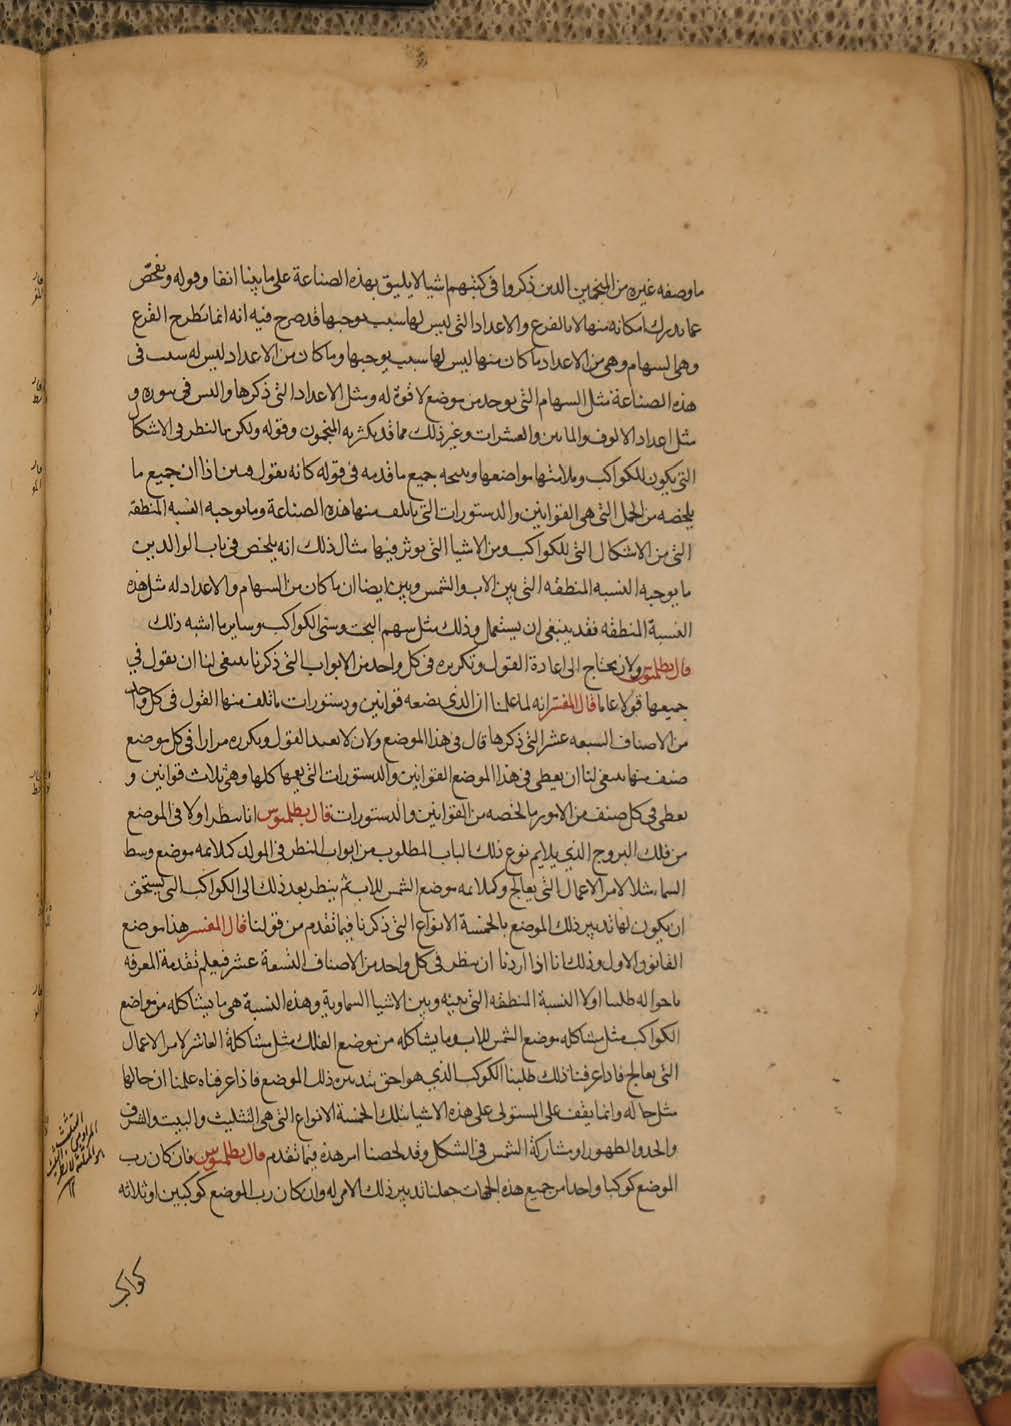 ما وصفه غيره من المنجمين الذين ذكروا في كتبهم اشيا لا يليق بهذه الصناعة على ما بينا انفا وقوله ونفحص
عما يدرك امكانه منها لا بالقرع والاعداد التي ليس لها سبب يوجبها قد صرح فيه انه انما تطرح القرع
وهي السهام وهي من الاعداد ما كان منها ليس لها سبب يوجبها وما كان من الاعداد ليس له سبب في
هذه الصناعة مثل السهام التي يوجد من موضع لا قوة له ومثل الاعداد التي ذكرها واليس في و
مثل اعداد الالوف والمايين والعشرات وغير ذلك مما قد يكثر به المنجمون وقوله ولكن بالنظر في الاشكال
التي يكون للكواكب وملامتها مواضعها جميع ما قدمه في قوله كانه يقول فمن اذا ان جميع ما
يلخصه من الجمل التي هي القوانين والدستورات التي يتالف منها هذه الصناعة وما يوجبه النسبه المنطقه
التي من الاشكال التي للكواكب ومن الاشيا التي يوثر فيها مثال ذلك انه يلخص في باب الوالدين
ما يوجبه النسبه المنطقه التي بين الاب والشمس وبين ايضا ان ما كان من السهام والاعداد له مثل هذه
النسبة المنطقه فقد ينبغي ان يستعمل وذلك مثل سهم البخت وسني الكواكب وساير ما اشبه ذلك
قال بطلميوس ولان يحتاج الى اعادة القول وتكريره في كل واحد من الابواب التي ذكرنا ينبغي لنا ان يقول في
جميعها قولا عاما قال المفسر انه لما علمنا ان الذي يضعه قوانين ودستورات يتالف منها القول في كل واحد
من الاصناف السبعه عشر التي ذكرها قال في هذا الموضع ولان لا نعيد القول ويكرره مرارا في كل موضع
صنف منها ينبغي لنا ان يعطى في هذا الموضع القوانين والدستورات التي يعمها كلها وهي ثلاث قوانين و
يعطى في كل صنف من الامور ما لخصه من القوانين والدستورات قال بطلميوس انا ننظر اولا في الموضع
من فلك البروج الذي يلايم نوع ذلك الباب المطلوب من ابواب النظر في المولد كملائمه موضع وسط
السما مثلا لامر الاعمال التي يعالج وكملائمه موضع الشمس للاب ثم ينظر بعد ذلك الى الكواكب التي يستحق
ان يكون لها تدبير ذلك الموضع بالخمسة الانواع التي ذكرنا فيما تقدم من قولنا قال المفسر هذا موضع
القانون الاول وذلك انا اذا اردنا ان ننظر في كل واحد من الاصناف السبعة عشر فيعلم تقدمة المعرفه
باحواله طلبنا اولا النسبة المنطقه التي بينه وبين الاشيا السماوية وهذه النسبة هي ما يشاكله من مواضع
الكواكب مثل مشاكله موضع الشمس للاب وما يشاكله من موضع الفلك مثل مشاكلة العاشر لامر الاعمال
التي يعالج فاذا عرفنا ذلك طلبنا الكوكب الذي هو احق بتدبير ذلك الموضع فاذا عرفناه علمنا ان حالها
مثل حاله وانما يقف على المستولى على هذه الاشيا بتلك الخمسة الانواع التي هي التثليث والبيت والشرف
والحد والظهور او مشاركة الشمس في الشكل وقد لخصنا امر هذه فيما تقدم قال بطلميوس فان كان رب
الموضع كوكبا واحدا من جميع هذه الجهات جعلنا تدبير ذلك الامر له وان كان رب الموضع كوكبين او ثلاثه
كواكب